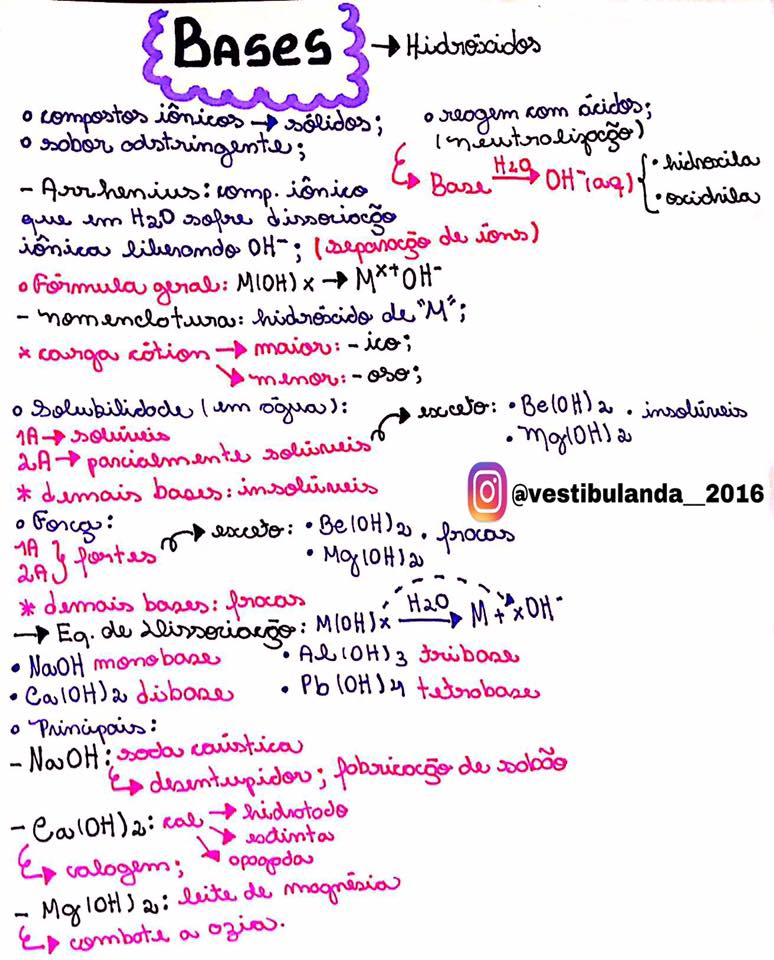 BASES → Hidróxidos
o compostos iônicos → sólidos;
o sabor adstringente;
o reagem com ácidos;
(neutralização)
Base H2O→ OH-(aq) { • hidroxila
• oxidrila
- Arrhenius: comp. iônico
que em H2O sofre dissociação
iônica liberando OH-; (separação de íons)
o Fórmula geral: M(OH)x → Mx+OH-
- nomenclatura: hidróxido de "M";
* carga cátion → maior: -ico;
→ menor: -oso;
o Solubilidade (em água):
1A → solúveis
2A → parcialmente solúveis → exceto: • Be(OH)2 • insolúveis
• Mg(OH)2
* demais bases: insolúveis
@vestibulanda__2016
o Força:
1A
2A } fortes → exceto: • Be(OH)2 • fracas
• Mg(OH)2
* demais bases: fracas
→ Eq. de Dissociação: M(OH)x H2O→ M + xOH-
• NaOH monobase • Al(OH)3 tribase
• Ca(OH)2 dibase • Pb(OH)4 tetrabase
o Principais:
- NaOH: soda caústica
→ desentupidor; fabricação de sabão
- Ca(OH)2: cal → hidratado
→ extinta
→ apagada
→ calagem;
- Mg(OH)2: leite de magnésia
→ combate a azia.